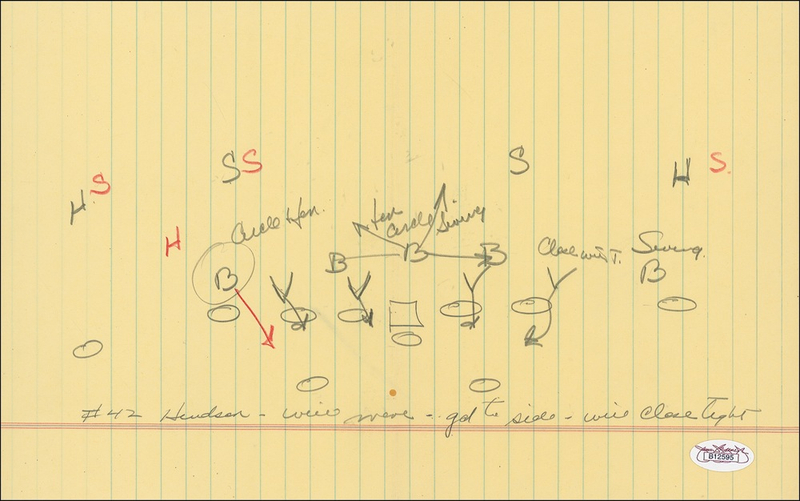 S S S
H S H S.
H Circle Hen. Hen Circle Swing Close with T. Swing.
B B B B B
#42 Hendson - will move - go to side - will close tight
B12595